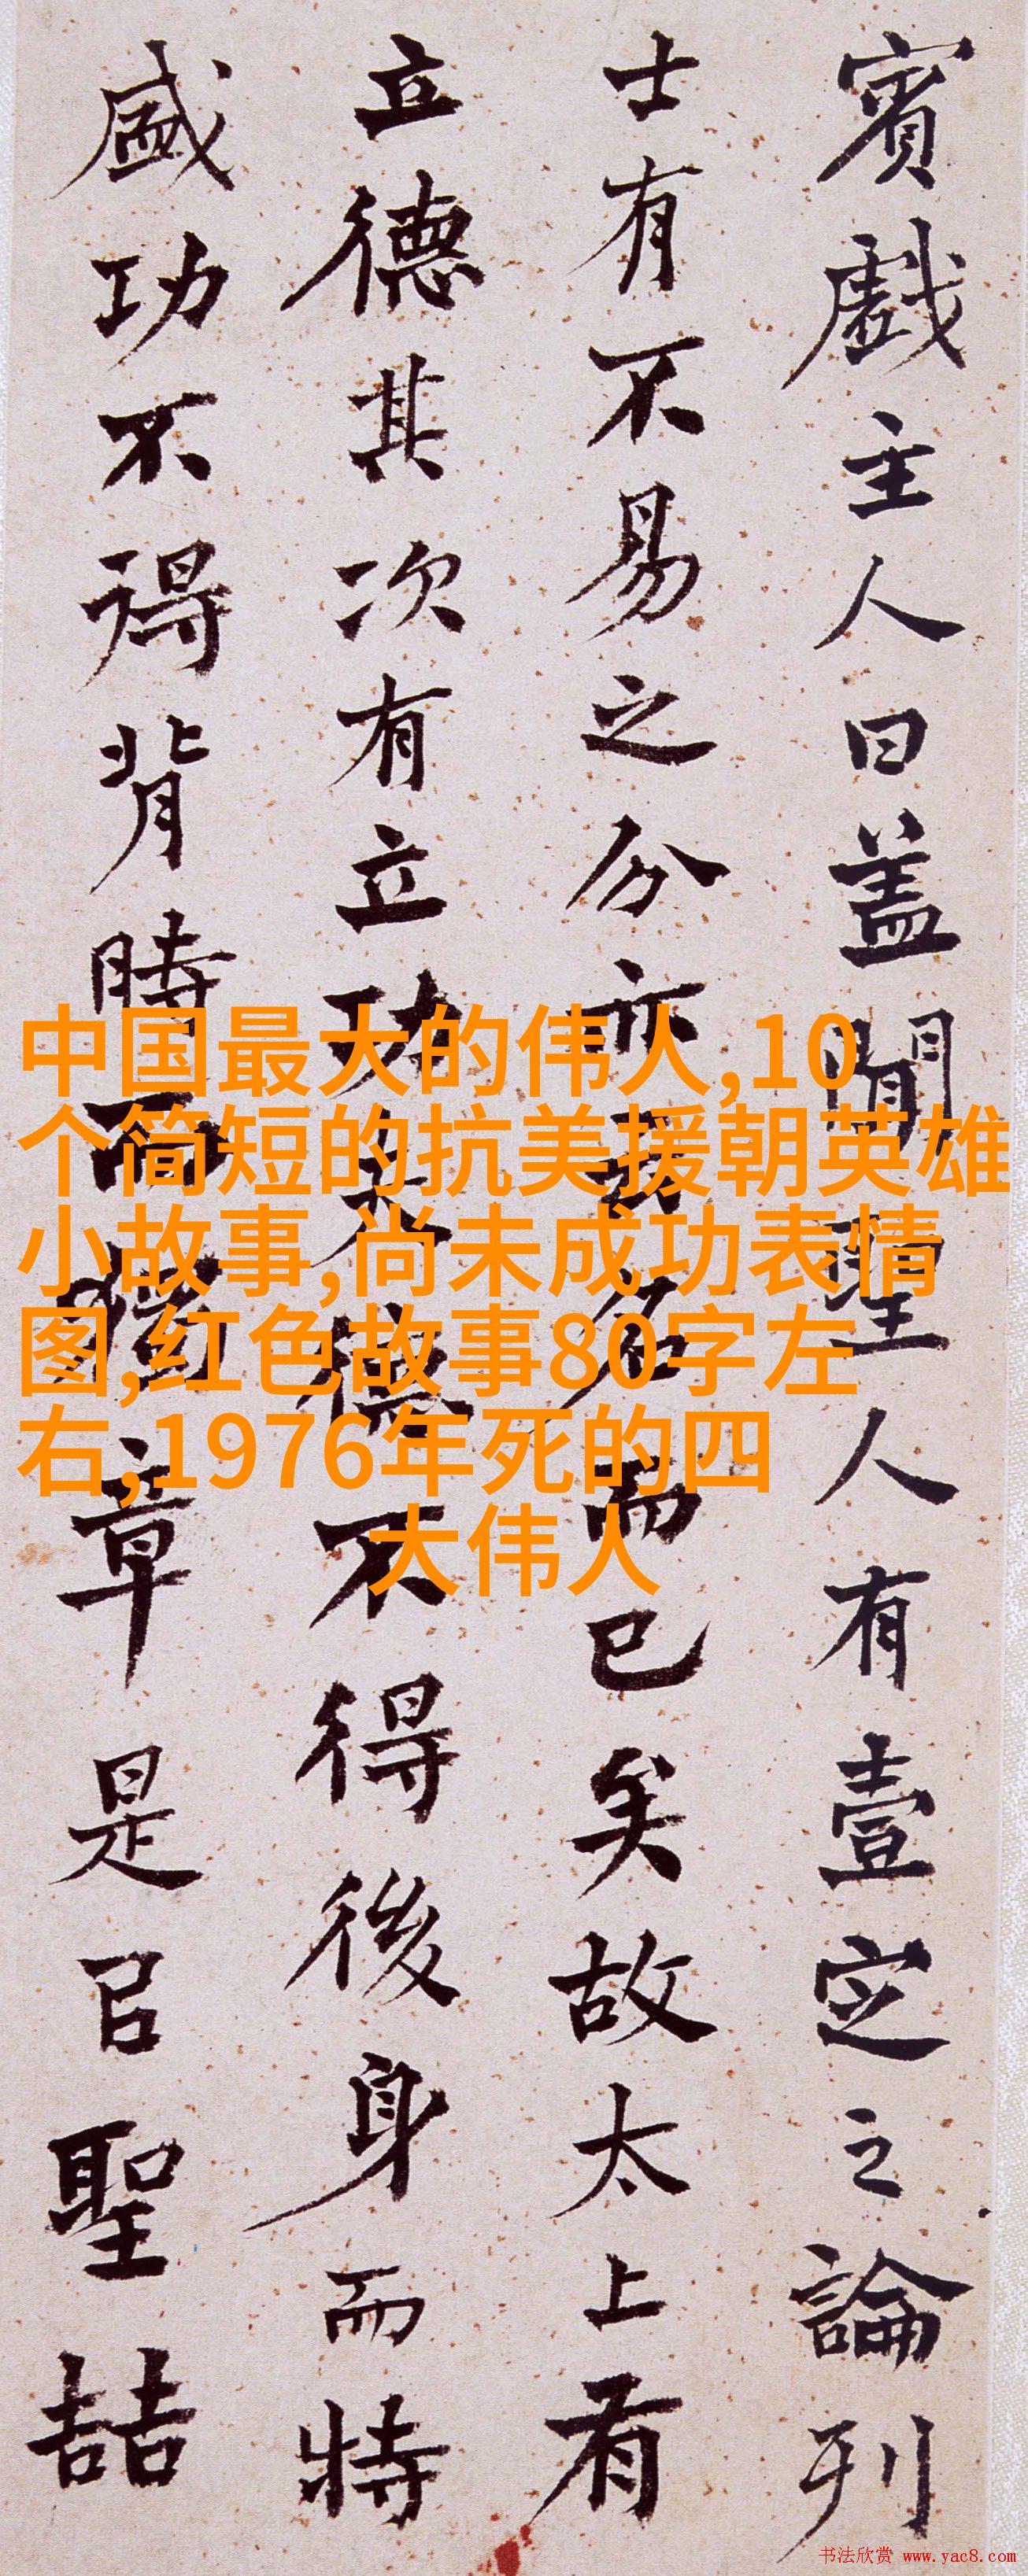 賓戲主人曰盖聞聖人有壹定之論列
士有不易之分亦云名而已矣故太上有
立德其次有立功夫德不得後身而特
盛功不得背時而獨章是㠯聖喆
中国最大的伟人,10
个简短的抗美援朝英雄
小故事,尚未成功表情
图,红色故事80字左
右,1976年死的四
大伟人
书法欣赏 www.yac8.com